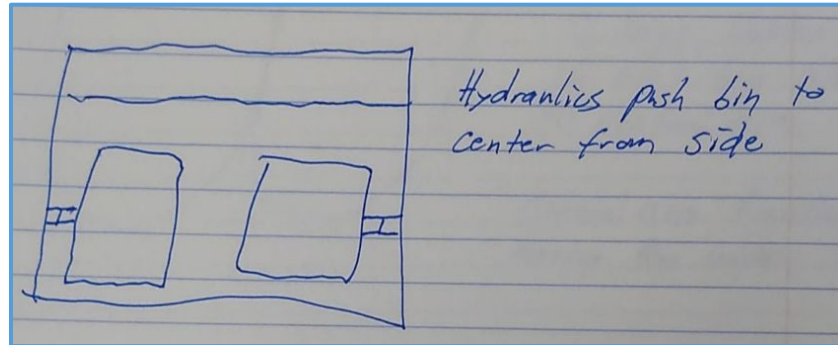 Hydraulics push bin to
center from side